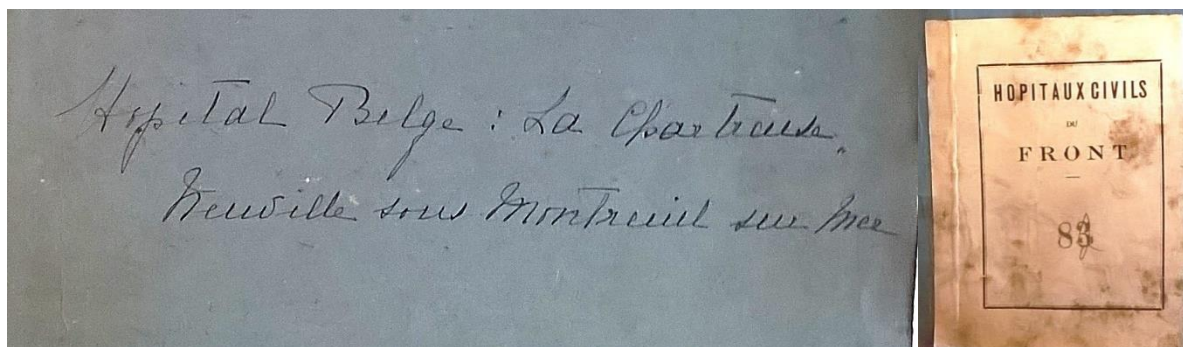 Hopital Belge : La Chartreuse.
Neuville sous Montreuil sur Mer
HOPITAUX CIVILS
DU
FRONT
83